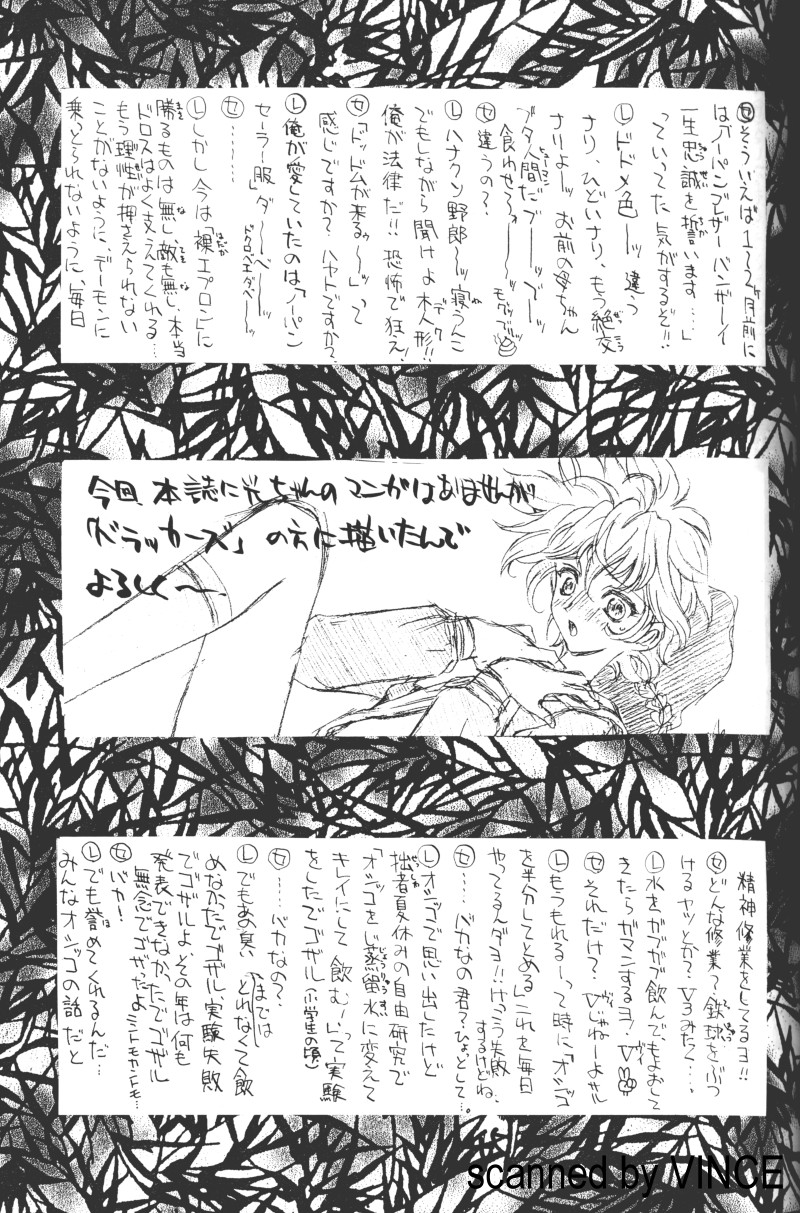 ㋝そういえば1〜2ヶ月前に
は「ノーパンブレザーバンザーイ
一生忠誠を誓います……」
っていってた気がするぞ!!
Ⓛドドメ色ーッ 違う
さり、ひどいさり、もう絶交
ナリよーッ お前の母ちゃん
ブタ人間だブーッブー
食わせろォーーッ モグッブ
㋝違うの?
Ⓛハナクソ野郎〜ッ 寝うんこ
でもしながら聞けよ木人形!!
俺が法律だ!! 恐怖で狂え!
㋝「ドッドムが来るゥ〜ッ」って
感じですか? ハヤトですか?
Ⓛ俺が愛していたのは「ノーパン
セーラー服」ダ〜ベ〜ッ
㋝………
Ⓛしかし今は「裸エプロン」に
勝るものは無し、敵も無し、本当
ドロスはよく支えてくれる…
もう理性が押さえられない
ことがないように、デーモンに
乗っとられないように、毎日
今回 本誌に光ちゃんのマンガはありませんが
「ドラッカーズ」の方に描いたんで
よろしく〜
精神修業をしてるヨ!!
㋝どんな修業? 鉄球をぶつ
けるヤッとか? V3みたく…。
Ⓛ水をガブガブ飲んで、もよおして
きたらガマンするヨ。V
㋝それだけ? Vじゃねーよ!!
Ⓛもうもれるーって時に「オシッコ
を半分してとめる」これを毎日
やってるんダヨ!! けっこう失敗
するけどね。
㋝…バカなの君?ひょっとして…。
Ⓛオシッコで思い出したけど
拙者夏休みの自由研究で
「オシッコをじょう蒸留水に変えて
キレイにして飲む」って実験
をしたでゴザル(小学生の頃)
㋝……バカなの?
Ⓛでもあの臭いまではとれなくて飲
めなかたでゴザル実験失敗
でゴザルよ、その年は何も
発表できなかったでゴザル
無念でゴザったよ
㋝バカ!
Ⓛでも誉めてくれるんだ…
みんなオシッコの話だと
scanned by VINCE